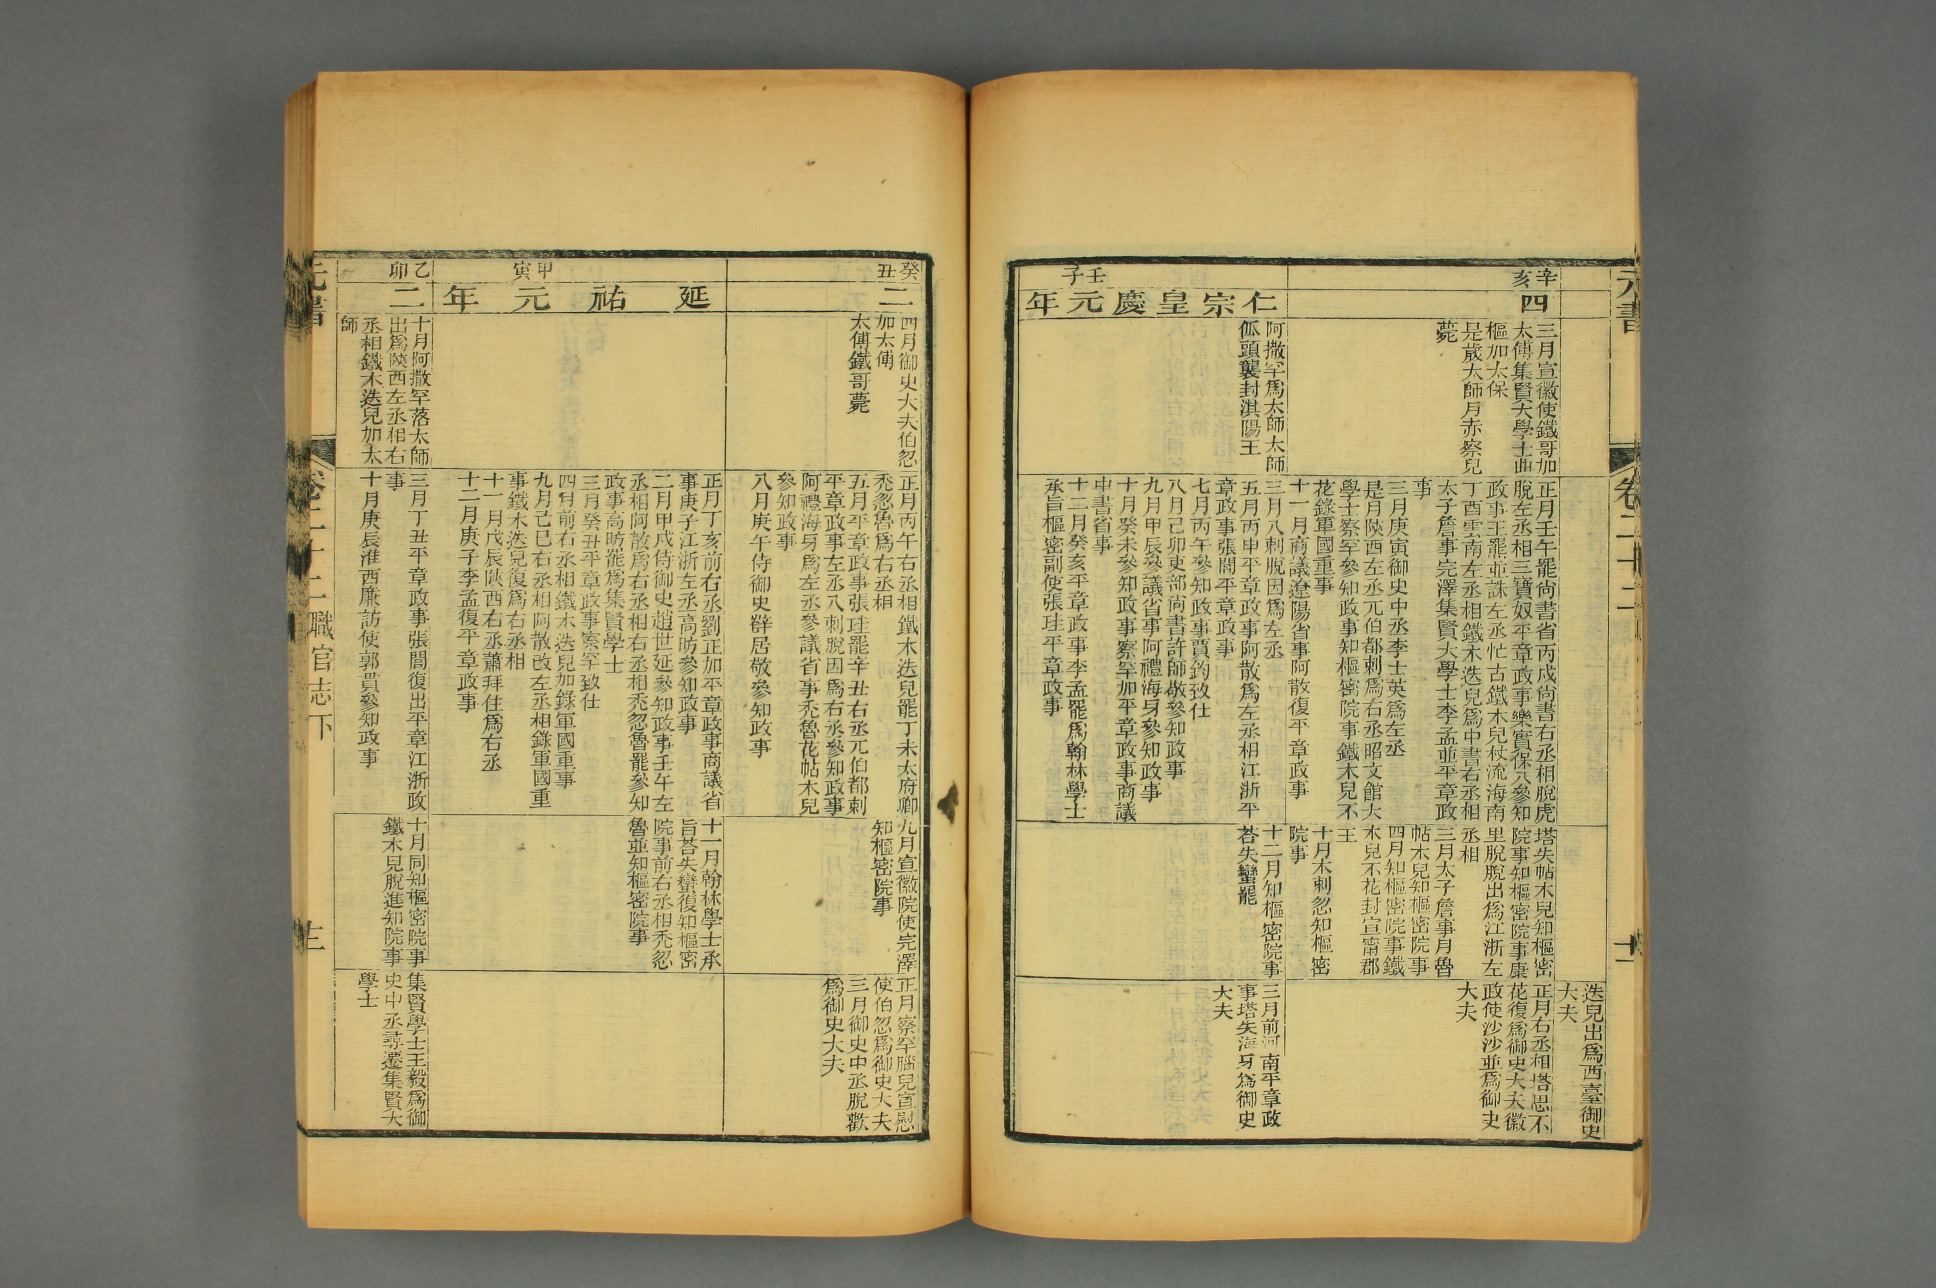 元書
卷二十二
迭兒出爲西臺御史
大夫
辛亥
四
三月宣徽使鐵哥加
太傅集賢大學士曲
樞加太保
是歲太師月赤察兒
薨
正月壬午罷尚書省丙戍尚書右丞相脫虎
脫左丞相三寶奴平章政事樂實保八參知
政事王羆並誅左丞忙古鐵木兒杖流海南
丁酉雲南左丞相鐵木迭兒爲中書右丞相
太子詹事完澤集賢大學士李孟並平章政
事
三月庚寅御史中丞李士英爲左丞
是月陝西左丞兀伯都剌爲右丞昭文館大
學士察罕參知政事知樞密院事鐵木兒不
花錄軍國重事
十一月商議遼陽省事阿散復平章政事
塔失帖木兒知樞密
院事知樞密院事康
里脫脫出爲江浙左
丞相
三月太子詹事月魯
帖木兒知樞密院事
四月知樞密院事鐵
木兒不花封宣甯郡
王
十月木剌忽知樞密
院事
正月右丞相塔思不
花復爲御史大夫徽
政使沙沙並爲御史
大夫
壬子
仁宗皇慶元年
阿撒罕爲太師太師
㼌頭襲封淇陽王
三月八剌脫因爲左丞
五月丙申平章政事阿散爲左丞相江浙平
章政事張閭平章政事
七月丙午參知政事賈鈞致仕
八月己卯吏部尚書許師敬參知政事
九月甲辰參議省事阿禮海牙參知政事
十月癸未參知政事察罕加平章政事商議
中書省事
十二月癸亥平章政事李孟罷爲翰林學士
承旨樞密副使張珪平章政事
十二月知樞密院事
荅失蠻罷
三月前河南平章政
事塔失海牙爲御史
大夫
癸丑
二
四月御史大夫伯忽
加太傅
太傅鐵哥薨
正月丙午右丞相鐵木迭兒罷丁未太府卿
禿忽魯爲右丞相
五月平章政事張珪罷辛丑右丞兀伯都剌
平章政事左丞八剌脫因爲右丞參知政事
阿禮海牙爲左丞參議省事禿魯花帖木兒
參知政事
八月庚午侍御史薛居敬參知政事
九月宣徽院使完澤
知樞密院事
正月察罕腦兒宣慰
使伯忽爲御史大夫
三月御史中丞脫歡
爲御史大夫
甲寅
延祐元年
正月丁亥前右丞劉正加平章政事商議省
事庚子江浙左丞高昉參知政事
二月甲戍侍御史趙世延參知政事壬午左
丞相阿散爲右丞相右丞相禿忽魯罷參知
政事高昉罷爲集賢學士
三月癸丑平章政事察罕致仕
四月前右丞相鐵木迭兒加錄軍國重事
九月己巳右丞相阿散改左丞相錄軍國重
事鐵木迭兒復爲右丞相
十一月戊辰陝西右丞蕭拜住爲右丞
十二月庚子李孟復平章政事
十一月翰林學士承
旨荅失蠻復知樞密
院事前右丞相禿忽
魯並知樞密院事
乙卯
二
十月阿撒罕落太師
出爲陝西左丞相右
丞相鐵木迭兒加太
師
三月丁丑平章政事張閭復出平章江浙政
事
十月庚辰淮西廉訪使郭貫參知政事
十月同知樞密院事
鐵木兒脫進知院事
集賢學士王毅爲御
史中丞尋遷集賢大
學士
元書
卷二十二職官志下